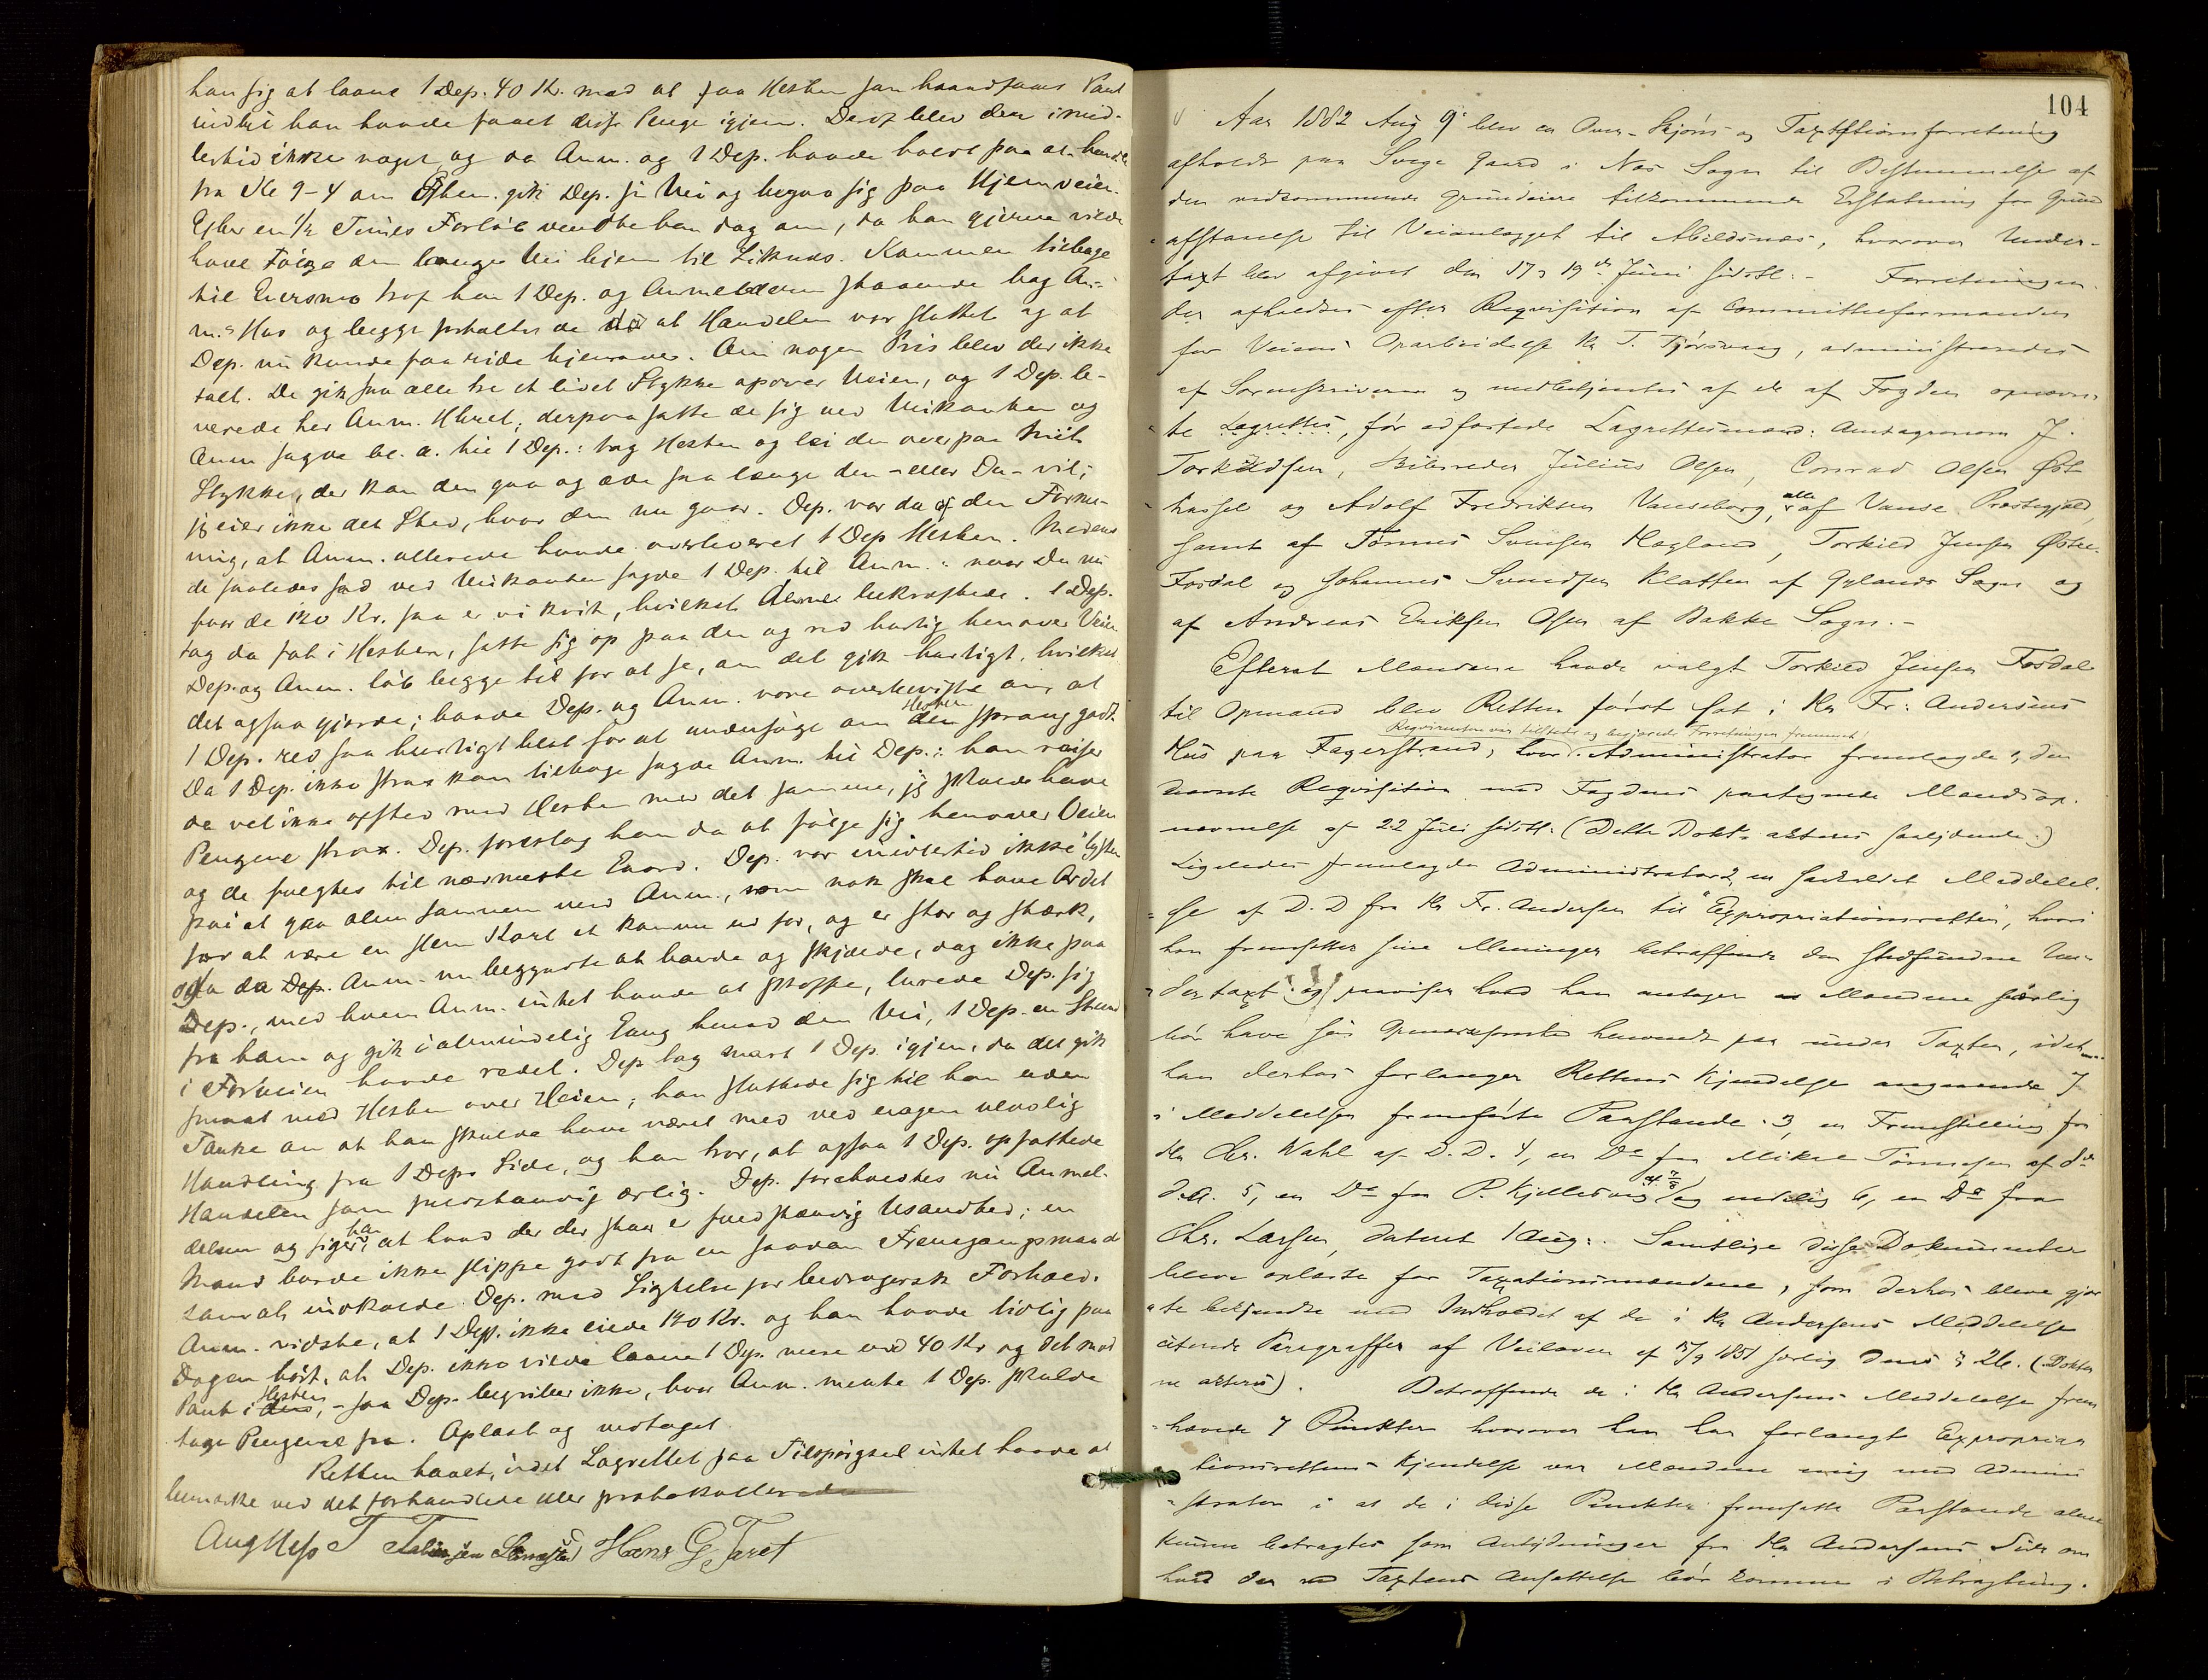 han sig at laane 1 Dep. 40 Kr. mod at faa Hesten som haandfaaet Pant
indtil han havde faaet disse Penge igjen. Deraf blev der imid-
lertid ikke noget, og da Anm. og 1 Dep. havde holdt paa at handle
fra Kl 9-4 om Efterm. gik Dep. sin Vei og begav sig paa Hjemveien.
Efter en 1/2 Times Forløb vendte han dog om, da han gjerne vilde
have Følge den lange Vei hjem til Liknes. Kommen tilbage
til traf han 1 Dep. og Anmelderen staaende bag An-
m.s Hus og begge fortalte de da at Handelen var sluttet og at
Dep. nu kunde faa ride hjemover. Om nogen Pris blev der ikke
talt. De gik saa alle tre et lidet Stykke opover Veien, og 1 Dep. le-
verede her Anm. Uhret; derpaa satte de sig ved Veikanten og
Anm sagde bl. a. til 1 Dep.: tag Hesten og lei den over paa mit
Stykke, der kan den gaa og æde saa længe den - eller Du - vil;
jeg eier ikke det Sted, hvor den nu gaar. Dep. var da af den Forme-
ning, at Anm. allerede havde overleveret 1 Dep Hesten. Medens
de saaledes sad ved Veikanten sagde 1 Dep. til Anm.: naar Du nu
faar de 120 Kr. saa er vi kvit, hvilket Anm. bekræftede. 1 Dep.
tog da fat i Hesten, satte sig op paa den og red hurtig henover Veien
Dep. og Anm. løb begge til for at se, om det gik hurtigt, hvilket
det ogsaa gjorde; baade Dep. og Anm. vare overbeviste om, at
1 Dep. red saa hurtigt blot for at undersøge om Hesten den sprang godt.
Da 1 Dep. ikke strax kom tilbage sagde Anm. til Dep.: han reiser
da vel ikke afsted med Hesten med det samme, jeg skulde have
Pengene strax. Dep. foreslog ham da at følge sig henover Veien
og de fulgtes til nærmeste Gaard. Dep. var imidlertid ikke lysten
paa at gaa alene sammen med Anm., som nok skal have Ordet
for at være en slem Karl at komme ud for, og er stor og stærk,
og da Dep. Anm. nu begyndte at bande og skjælde, dog ikke paa
Dep., med hvem Anm. intet havde at skaffe, lurede Dep. sig
fra ham og gik i almindelig Gang henad den Vei, 1 Dep. en Stund
i Forveien havde redet. Dep tog snart 1 Dep. igjen, da det gik
smaat med Hesten over Heien; han sluttede sig til ham uden
Tanke om at han skulde have været med ved nogen ulovlig
Handling fra 1 Deps Side, og han tror, at ogsaa 1 Dep. opfattede
Handelen som fuldstændig ærlig. Dep. foreholdtes nu Anmel-
delsen og siger han, at hvad der der staar er fuldstændig Usandhed; en
Mand burde ikke slippe godt fra en saadan Fremgangsmaade
samt at indkalde Dep. med Sigtelse for bedragersk Forhold.
Anm. vidste, at 1 Dep. ikke eiede 120 Kr. og han havde tidlig paa
Dagen hørt, at Dep. ikke vilde laane 1 Dep. mere end 40 Kr og det mod
Pant i Hesten, - saa Dep. begriber ikke, hvor Anm. mente 1 Dep. skulde
tage Pengene fra. Oplæst og vedtaget
Retten hævet, idet Lagrettet paa Tilspørgsel intet havde at
bemærke ved det forhandlede eller protokollerede
Aug Hess T Hans G Jaret
104
Aar 1882 Aug 9. blev en Over-Skjøns og Taxtationsforretning
afholdt paa Svege Gaard i Nes Sogn til Bestemmelse af
den vedkommende Grundeiere tilkommende Erstatning for Grund
afstaaelse til Veianlægget til Abildsnæs, hvorover Under-
taxt blev afgivet den 17 & 19de Juni sidstl. - Forretningen
der afholdtes efter Reqvisition af Committeeformanden
for Veiens Oparbeidelse Hr T. Tjørsvaag, administreredes
af Sorenskriveren og medbetjentes af de af Fogden opnævn-
te Lagrettes, før edfæstede Lagrettesmænd: Amtagronom J.
Torkildsen, Skibsreder Julius Olsen, Conrad Olsen Øst
hassel og Adolf Fredriksen Vanseborg, alle af Vanse Præstegjeld,
samt af Tønnes Svensen Hægland, Torkild Jensen Østre
Fosdal og Johannes Svendsen Klatten af Gylands Sogn og
af Andreas Eriksen Osen af Bakke Sogn. -
Efterat Mændene havde valgt Torkild Jensen Fosdal
til Opmand blev Retten først sat i Hr Fr: Andersens
Reqvirenten var tilstede og begjærede Forretningen fremmet!
Hus paa Fagerstrand, hvor Administrator fremlagde 1, den
Reqvisition med Fogdens paategnede Mandsop-
nævnelse af 22 Juli sidstl: (Dette Dokt. aktens saalydende:)
Ligeledes fremlagde Administrator 2, en saakaldet Meddelel-
se af D.D fra Hr Fr. Andersen til "Expropriationsretten", hvori
han fremsætter sine Meninger betræffende den stedfundne Un-
dertaxt og paaviser hvad han antager Mændene særlig
bør have sin Opmærksomhed henvendt paa under Taxten, idet
han derhos forlanger Rettens Kjendelse angaaende 7
i Meddelelsen fremførte Paastande. 3, en Fremstilling fra
Hr Chr. Wahl af D.D. 4, en Do fra Mikal Tønnesen af
d.A. 5, en Do fra P. Kjellesvig og endelig 6, en Do fra
Chr. Larsen, dateret 1 Aug. Samtlige disse Dokumenter
bleve oplæste for Taxationsmændene, som derhos bleve gjor
te bekjendte med Indholdet af de i Hr Andersens Meddelelse
citerede Paragraffer af Veiloven af 15/9 1851 særlig dens § 26. (Dokte
ne akteres). Betræffende de i Hr Andersens Meddelelse frem
hævede 7 Punkter hvorover han har forlangt Expropria
tionsrettens Kjendelse var Mændene enig med Admini
strator i at de i disse Punkter fremsatte Paastande alene
kunne betragtes som Antydninger fra Hr Andersens Side om
hvad der ved Taxtens Ansættelse bør komme i Betragtning.